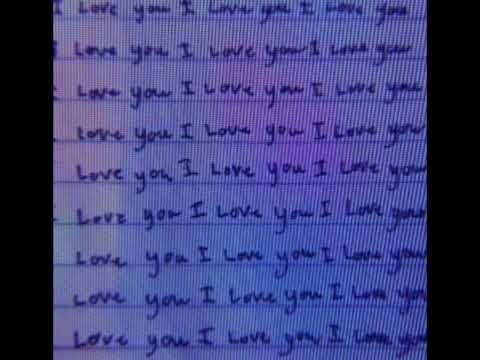 I Love you I Love you I Love you
I Love you I Love you I Love you
I Love you I Love you I Love you
Love you I Love you I Love you
I Love you I Love you I Love you
I Love you I Love you I Love you
Love you I Love you I Love you
Love you I Love you I Love you
Love you I Love you I Love you